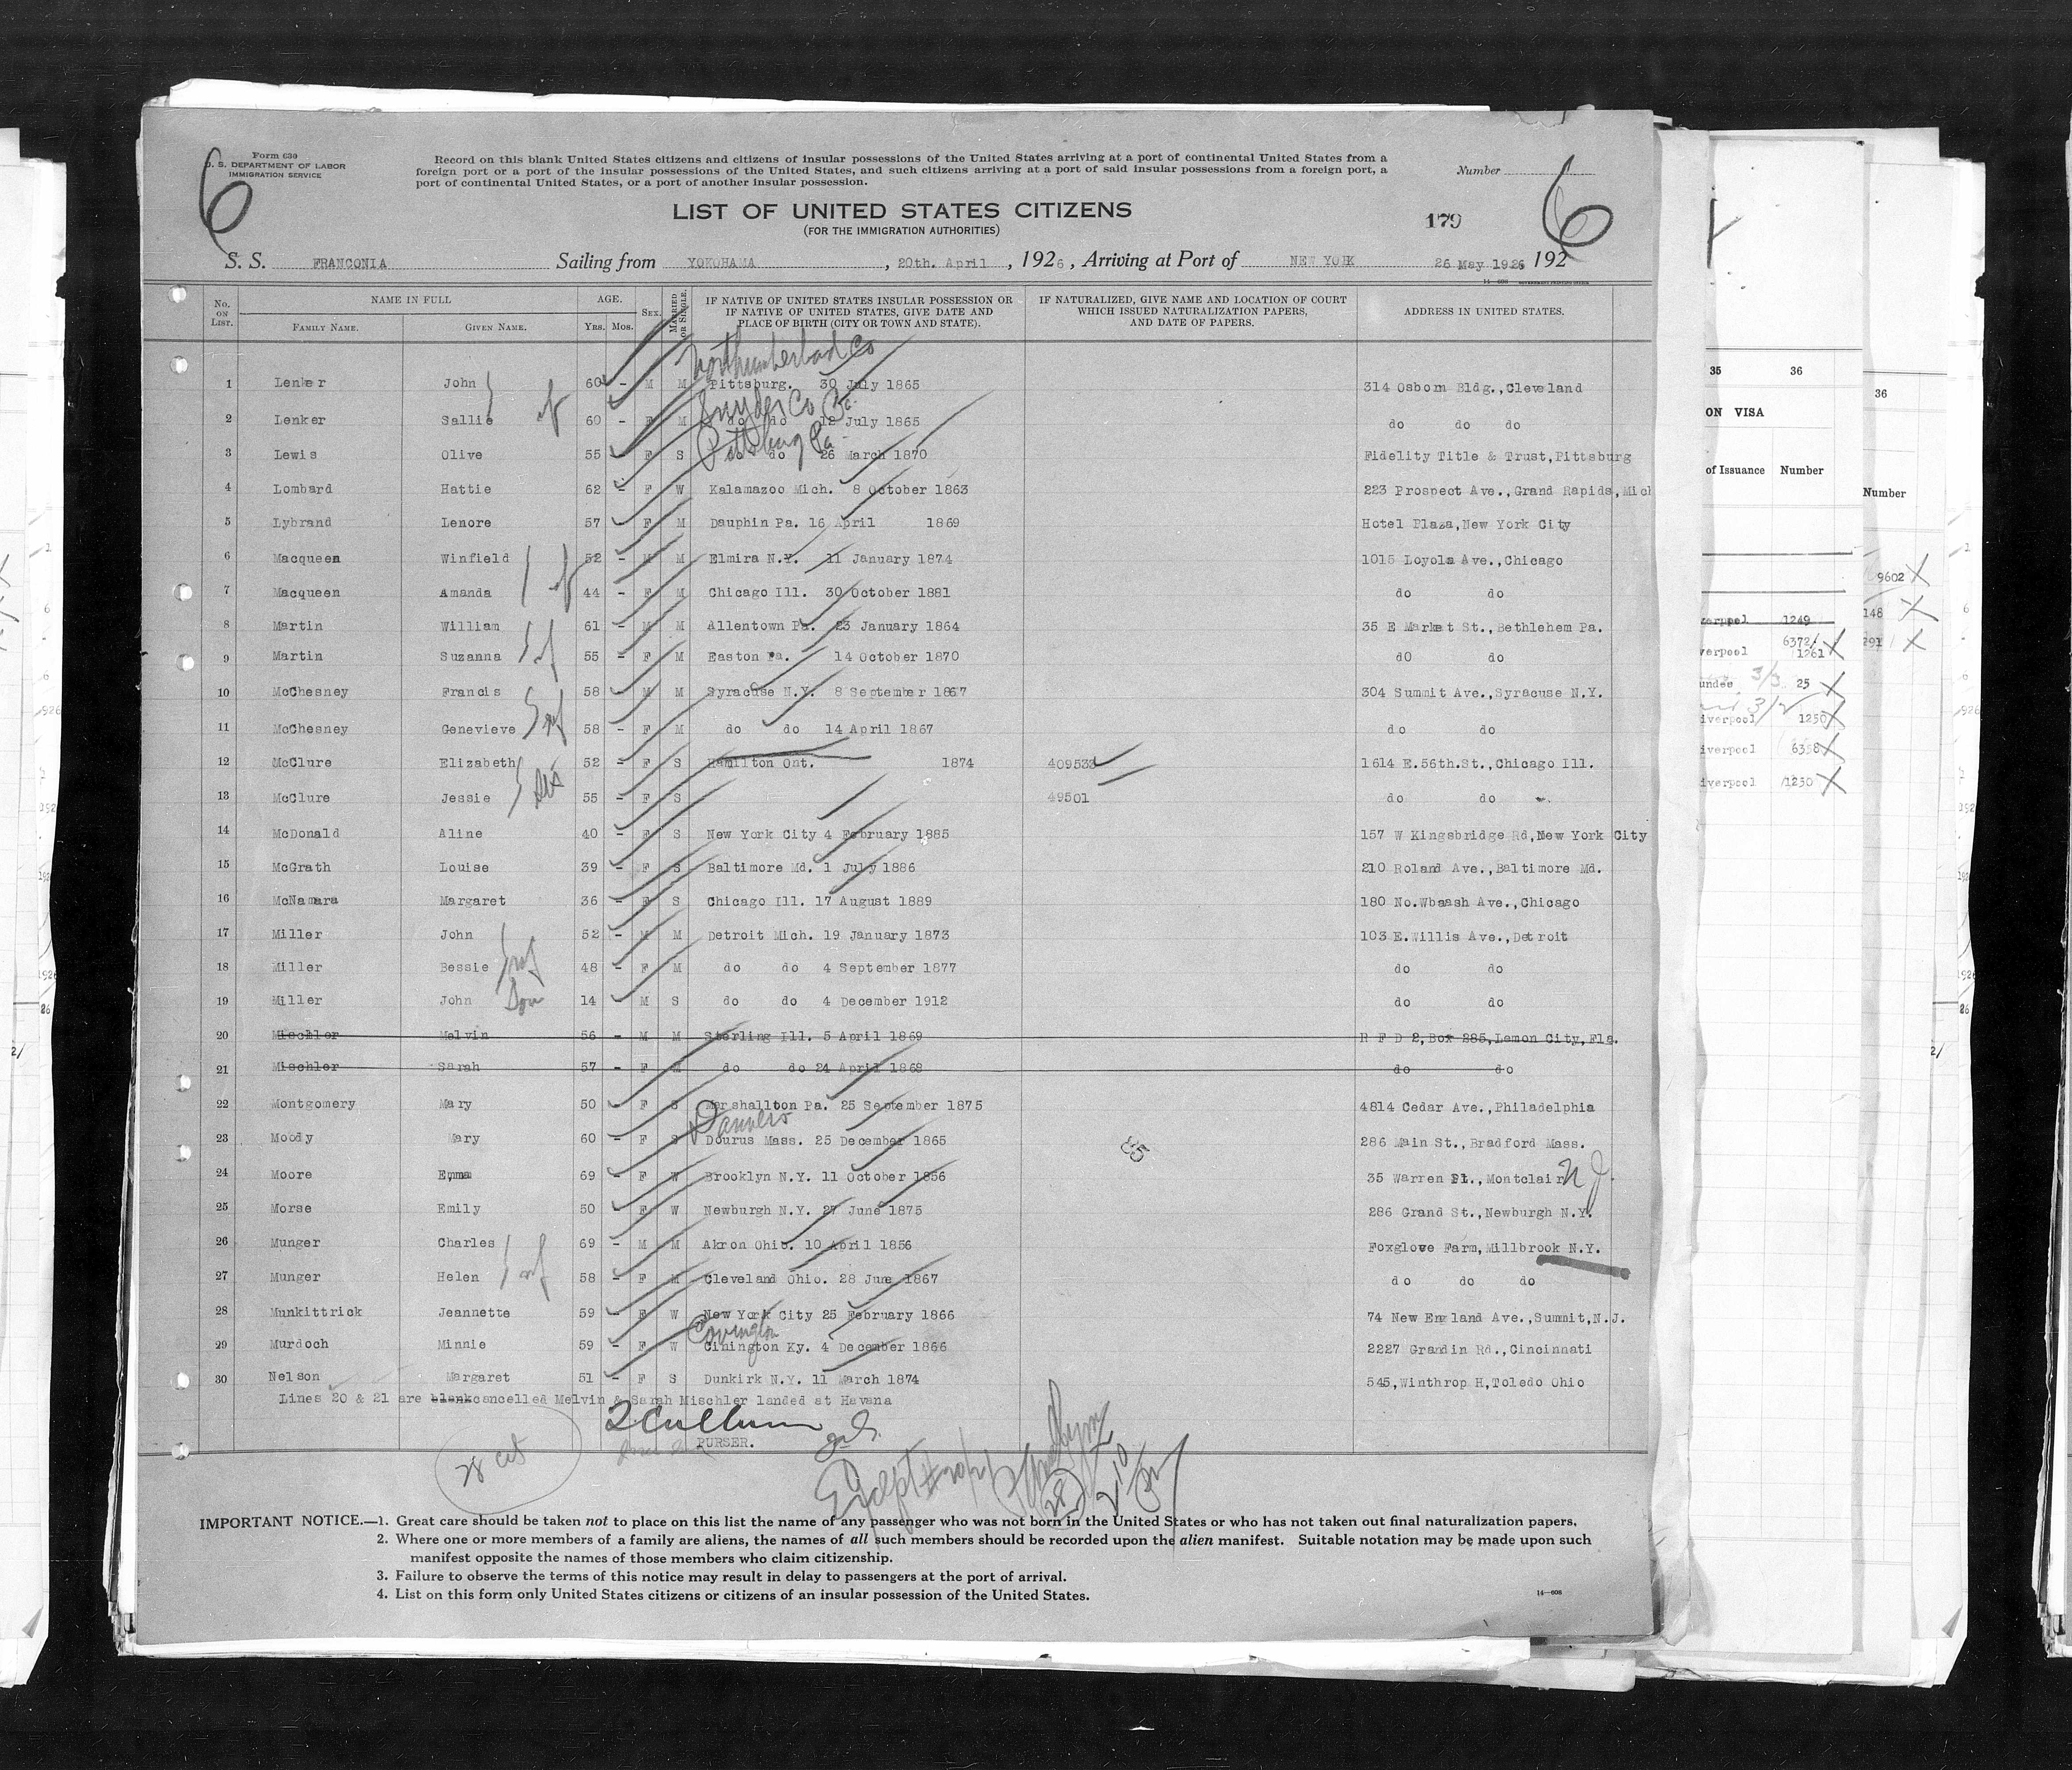 Form 630
U. S. DEPARTMENT OF LABOR
IMMIGRATION SERVICE
6
Record on this blank United States citizens and citizens of insular possessions of the United States arriving at a port of continental United States from a
foreign port or a port of the insular possessions of the United States, and such citizens arriving at a port of said insular possessions from a foreign port, a
port of continental United States, or a port of another insular possession.
Number
6
LIST OF UNITED STATES CITIZENS
(FOR THE IMMIGRATION AUTHORITIES)
179
S. S. FRANCONIA Sailing from YOKOHAMA, 20th. April, 1926, Arriving at Port of NEW YORK 26 May 1926 192
No. ON LIST. NAME IN FULL FAMILY NAME. GIVEN NAME. AGE. YRS. MOS. SEX. MARRIED OR SINGLE. IF NATIVE OF UNITED STATES INSULAR POSSESSION OR IF NATIVE OF UNITED STATES, GIVE DATE AND PLACE OF BIRTH (CITY OR TOWN AND STATE). IF NATURALIZED, GIVE NAME AND LOCATION OF COURT WHICH ISSUED NATURALIZATION PAPERS, AND DATE OF PAPERS. ADDRESS IN UNITED STATES.
Northumberland Co
1 Lenker John 60 - M M Pittsburg. 30 July 1865 314 Osborn Bldg.,Cleveland
Snyder Co Pa.
2 Lenker Sallie 60 - F M do do 12 July 1865 do do do
Pittsburg Pa.
3 Lewis Olive 55 - F S do do 26 March 1870 Fidelity Title & Trust,Pittsburg
4 Lombard Hattie 62 - F W Kalamazoo Mich. 8 October 1863 223 Prospect Ave.,Grand Rapids,Mich
5 Lybrand Lenore 57 - F M Dauphin Pa. 16 April 1869 Hotel Plaza,New York City
6 Macqueen Winfield 52 - M M Elmira N.Y. 11 January 1874 1015 Loyola Ave.,Chicago
7 Macqueen Amanda 44 - F M Chicago Ill. 30 October 1881 do do
8 Martin William 61 - M M Allentown Pa. 23 January 1864 35 E Market St.,Bethlehem Pa.
9 Martin Suzanna 55 - F M Easton Pa. 14 October 1870 dO do
10 McChesney Francis 58 - M M Syracuse N.Y. 8 September 1867 304 Summit Ave.,Syracuse N.Y.
11 McChesney Genevieve 58 - F M do do 14 April 1867 do do
12 McClure Elizabeth 52 - F S Hamilton Ont. 1874 409532 1614 E.56th.St.,Chicago Ill.
13 McClure Jessie 55 - F S 49501 do do
14 McDonald Aline 40 - F S New York City 4 February 1885 157 W Kingsbridge Rd,New York City
15 McGrath Louise 39 - F S Baltimore Md. 1 July 1886 210 Roland Ave.,Baltimore Md.
16 McNamara Margaret 36 - F S Chicago Ill. 17 August 1889 180 No.Wbaash Ave.,Chicago
17 Miller John 52 - M M Detroit Mich. 19 January 1873 103 E.Willis Ave.,Detroit
18 Miller Bessie 48 - F M do do 4 September 1877 do do
19 Miller John Son 14 M S do do 4 December 1912 do do
20 Mischler Melvin 56 - M M Sterling Ill. 5 April 1869 R F D 2,Box 285,Lemon City,Fla.
21 Mischler Sarah 57 - F M do do 24 April 1868 do do
22 Montgomery Mary 50 - F S Marshallton Pa. 25 September 1875 4814 Cedar Ave.,Philadelphia
Danvers
23 Moody Mary 60 - F S Dourus Mass. 25 December 1865 286 Main St.,Bradford Mass.
85
24 Moore Emma 69 - F W Brooklyn N.Y. 11 October 1856 35 Warren Pl.,Montclair N J.
25 Morse Emily 50 - F W Newburgh N.Y. 27 June 1875 286 Grand St.,Newburgh N.Y.
26 Munger Charles 69 - M M Akron Ohio. 10 April 1856 Foxglove Farm,Millbrook N.Y.
27 Munger Helen 58 - F M Cleveland Ohio. 28 June 1867 do do do
28 Munkittrick Jeannette 59 - F W New York City 25 February 1866 74 New England Ave.,Summit,N.J.
Covington
29 Murdoch Minnie 59 - F W Cinington Ky. 4 December 1866 2227 Grandin Rd.,Cincinnati
30 Nelson Margaret 51 - F S Dunkirk N.Y. 11 March 1874 545,Winthrop H,Toledo Ohio
Lines 20 & 21 are blank cancelled Melvin & Sarah Mischler landed at Havana
PURSER.
28
28
IMPORTANT NOTICE.—1. Great care should be taken not to place on this list the name of any passenger who was not born in the United States or who has not taken out final naturalization papers.
2. Where one or more members of a family are aliens, the names of all such members should be recorded upon the alien manifest. Suitable notation may be made upon such
manifest opposite the names of those members who claim citizenship.
3. Failure to observe the terms of this notice may result in delay to passengers at the port of arrival.
4. List on this form only United States citizens or citizens of an insular possession of the United States.
14—608
35 36
ON VISA
of Issuance Number
1249
6372/
verpool 1261
undee 25
iverpool 1250
iverpool 6358
iverpool 1250
36
Number
9602
148
291